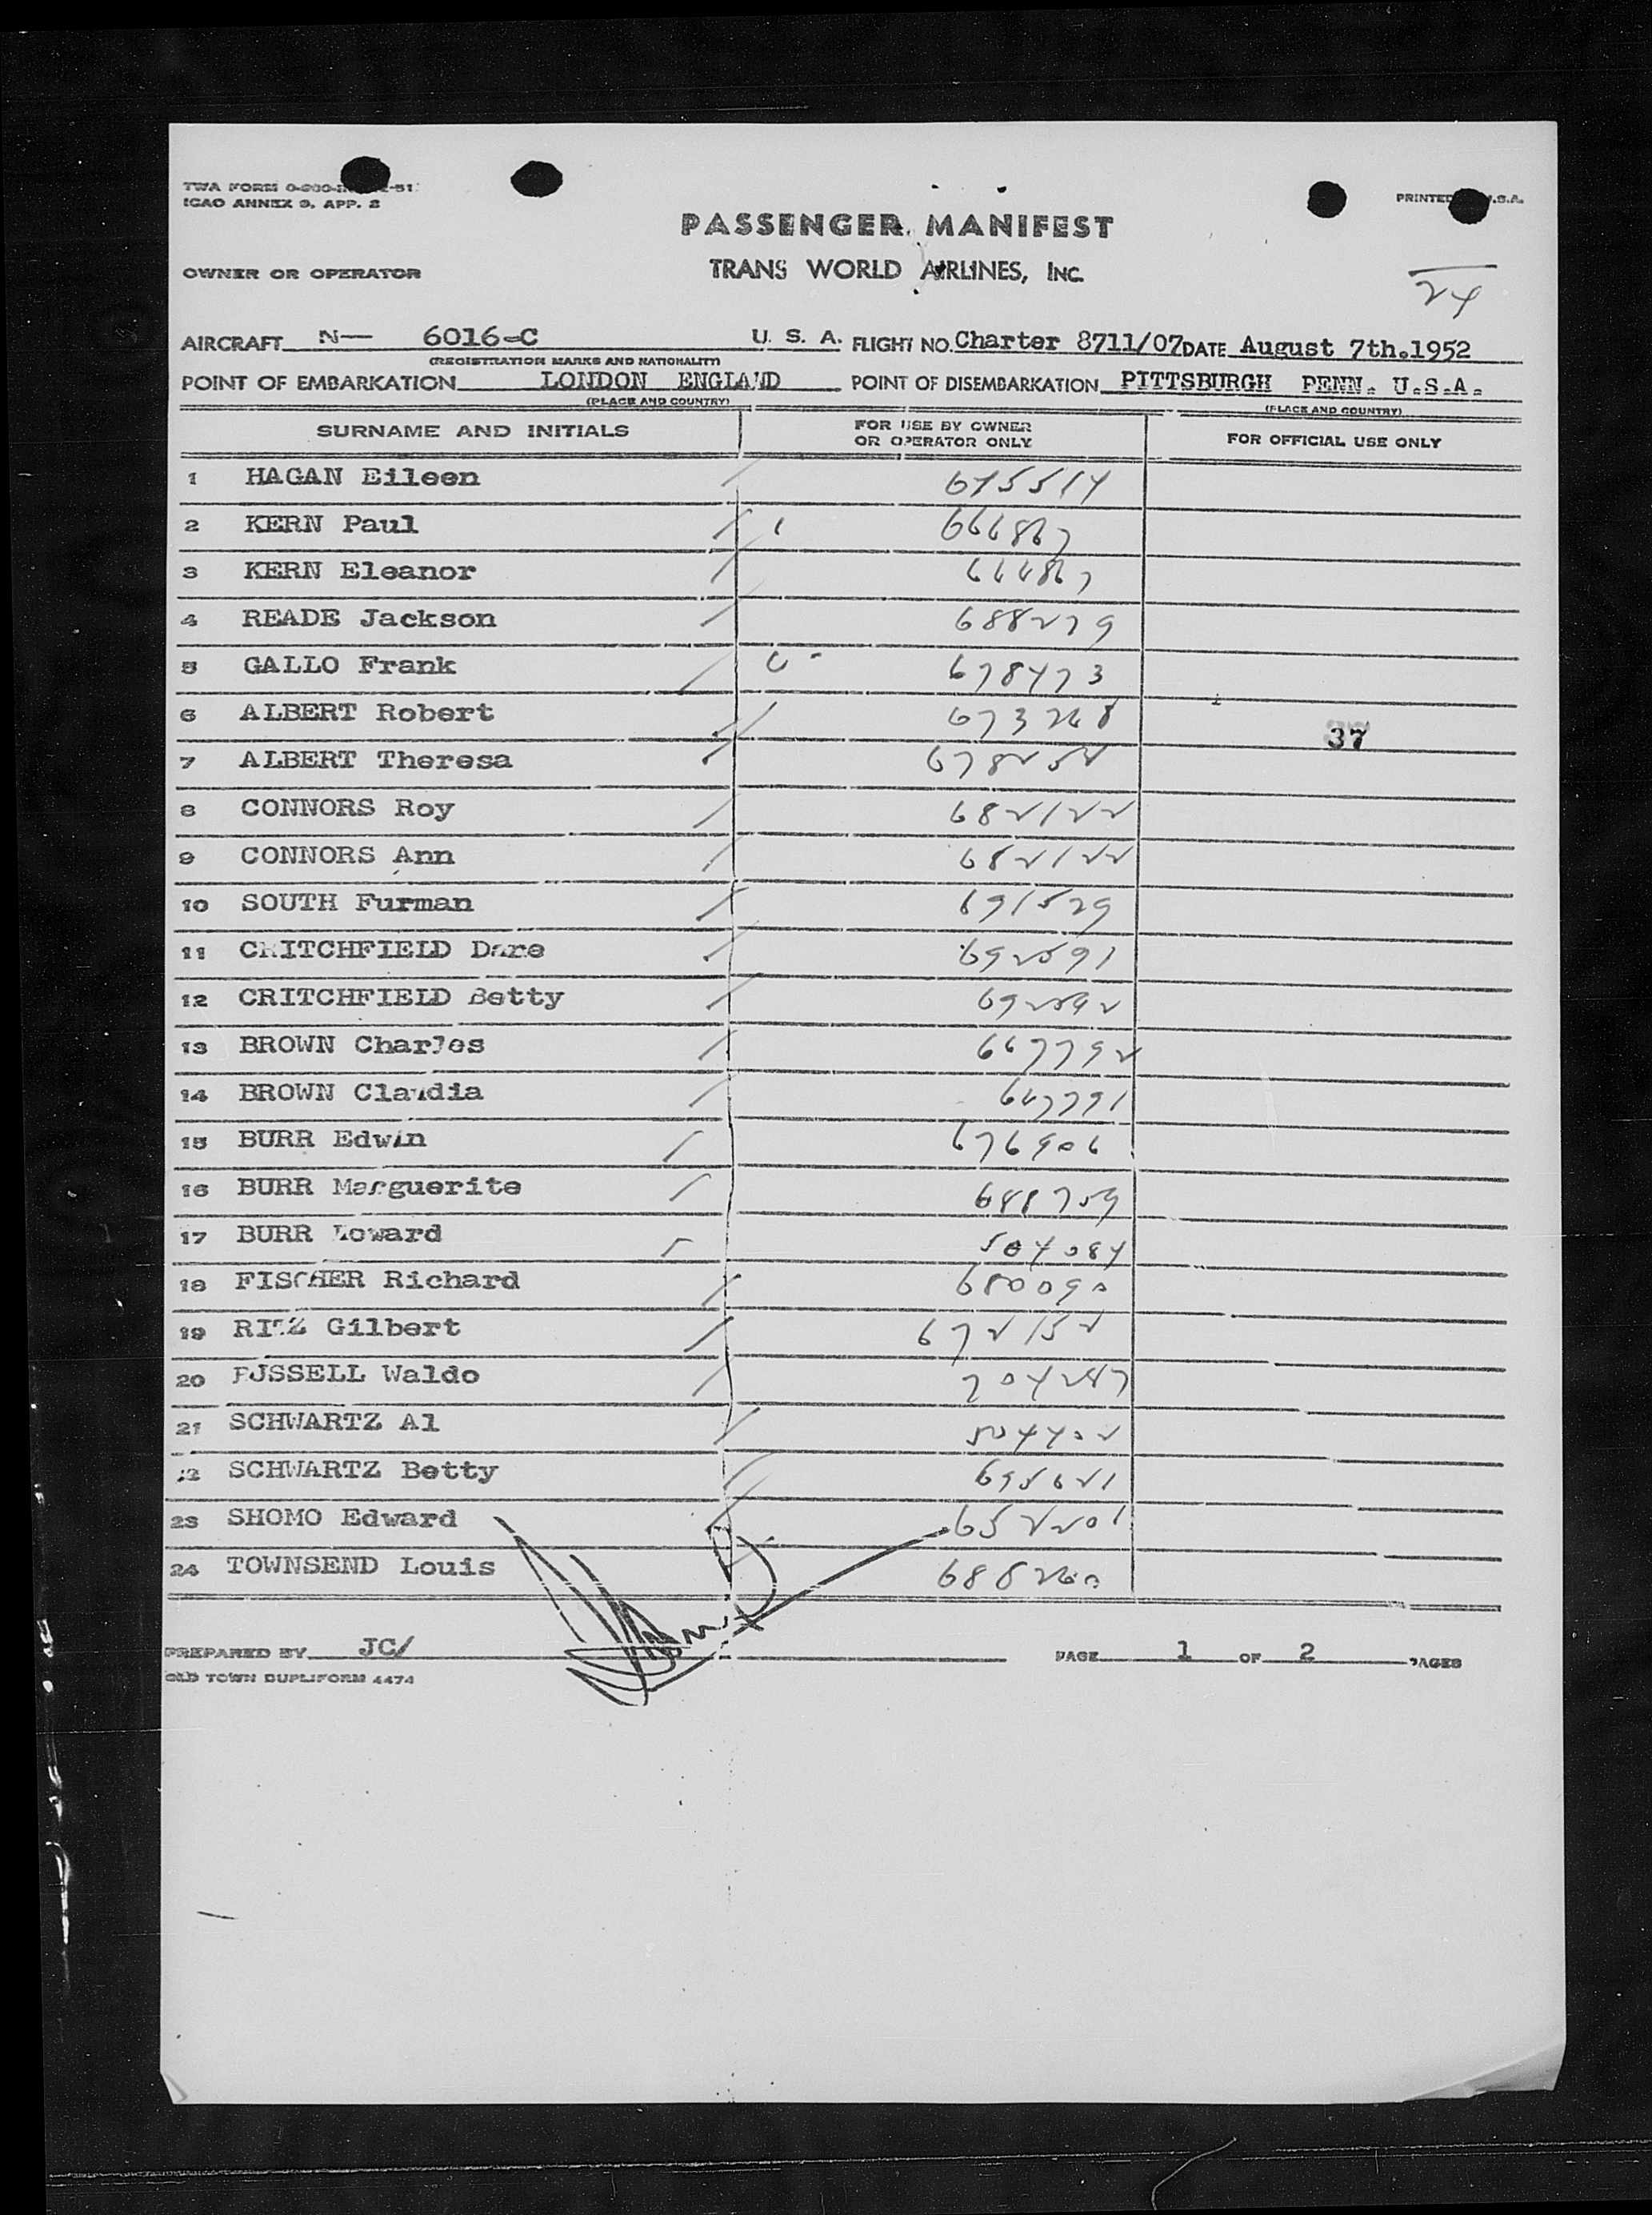 TWA FORM 0-900- -51
ICAO ANNEX 9, APP. 2
PRINTED U.S.A.
PASSENGER MANIFEST
OWNER OR OPERATOR TRANS WORLD AIRLINES, INC.
24
AIRCRAFT N— 6016-C U. S. A. FLIGHT NO. Charter 8711/07 DATE August 7th.1952
(REGISTRATION MARKS AND NATIONALITY)
POINT OF EMBARKATION LONDON ENGLAND POINT OF DISEMBARKATION PITTSBURGH PENN. U.S.A.
(PLACE AND COUNTRY) (PLACE AND COUNTRY)
SURNAME AND INITIALS FOR USE BY OWNER OR OPERATOR ONLY FOR OFFICIAL USE ONLY
1 HAGAN Eileen
2 KERN Paul 666867
3 KERN Eleanor 666867
4 READE Jackson 688279
5 GALLO Frank 678473
6 ALBERT Robert 673268
37
7 ALBERT Theresa
8 CONNORS Roy 682122
9 CONNORS Ann 682122
10 SOUTH Furman 691529
11 CRITCHFIELD Dare 692591
12 CRITCHFIELD Betty 692592
13 BROWN Charles 667792
14 BROWN Claudia 667791
15 BURR Edwin 676906
16 BURR Marguerite 688759
17 BURR Howard 504084
18 FISCHER Richard 680090
19 RITZ Gilbert 672152
20 RUSSELL Waldo 704247
21 SCHWARTZ Al 504402
22 SCHWARTZ Betty 695621
23 SHOMO Edward 652201
24 TOWNSEND Louis 688260
PREPARED BY JC/ PAGE 1 OF 2 PAGES
OLD TOWN DUPLIFORM 4474